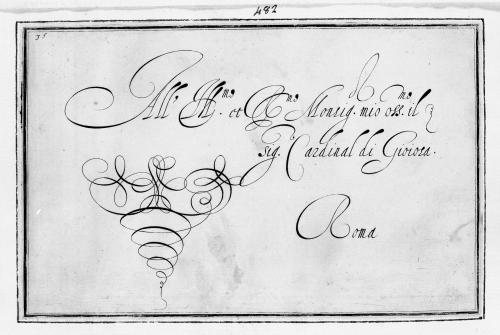 482
35
All' Ill.mo et R.mo Monsig. mio oss.mo il
sig. Cardinal di Gioiosa.
Roma